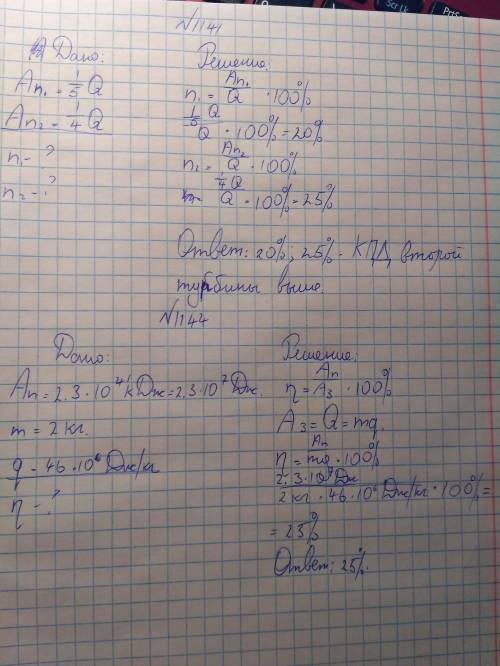 №1141
Дано:
Aп₁ = 1/5 Q
Aп₂ = 1/4 Q
n₁ - ?
n₂ - ?
Решение:
n₁ = Aп₁/Q · 100%
1/5 Q/Q · 100% = 20%
n₂ = Aп₂/Q · 100%
1/4 Q/Q · 100% = 25%
Ответ: 20%; 25% - КПД второй
турбины выше.
№1144
Дано:
Aп = 2,3 · 10⁴ кДж = 2,3 · 10⁷ Дж.
m = 2 кг.
q - 46 · 10⁶ Дж/кг
η - ?
Решение:
η = Aп/Aз · 100%
Aз = Q = mq.
η = Aп/mq · 100%
2,3 · 10⁷ Дж/2 кг · 46 · 10⁶ Дж/кг · 100% =
= 25%
Ответ: 25%.